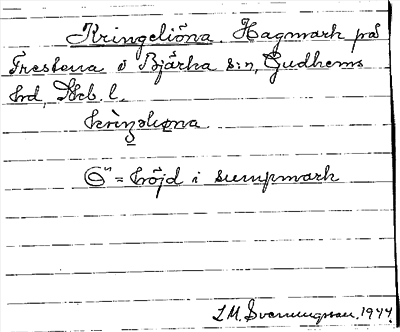 Kringeliöna. Hagmark på
Frestena i Bjärka s:n, Gudhems
hrd, Skb. l.
krìŋəliǫna
Ö" = höjd i sumpmark
L.M. Svanungsson. 1944